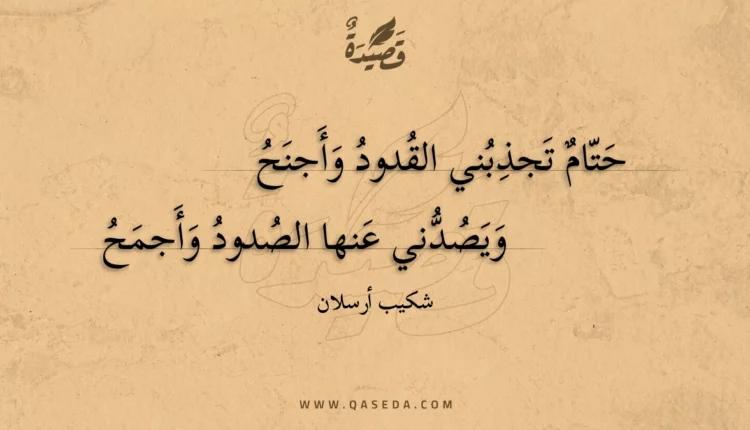 قَصِيدَةٌ
حَتّامٌ تَجذِبُني القُدودُ وَأَجنَحُ
وَيَصُدُّني عَنها الصُدودُ وَأَجمَحُ
شكيب أرسلان
WWW.QASEDA.COM